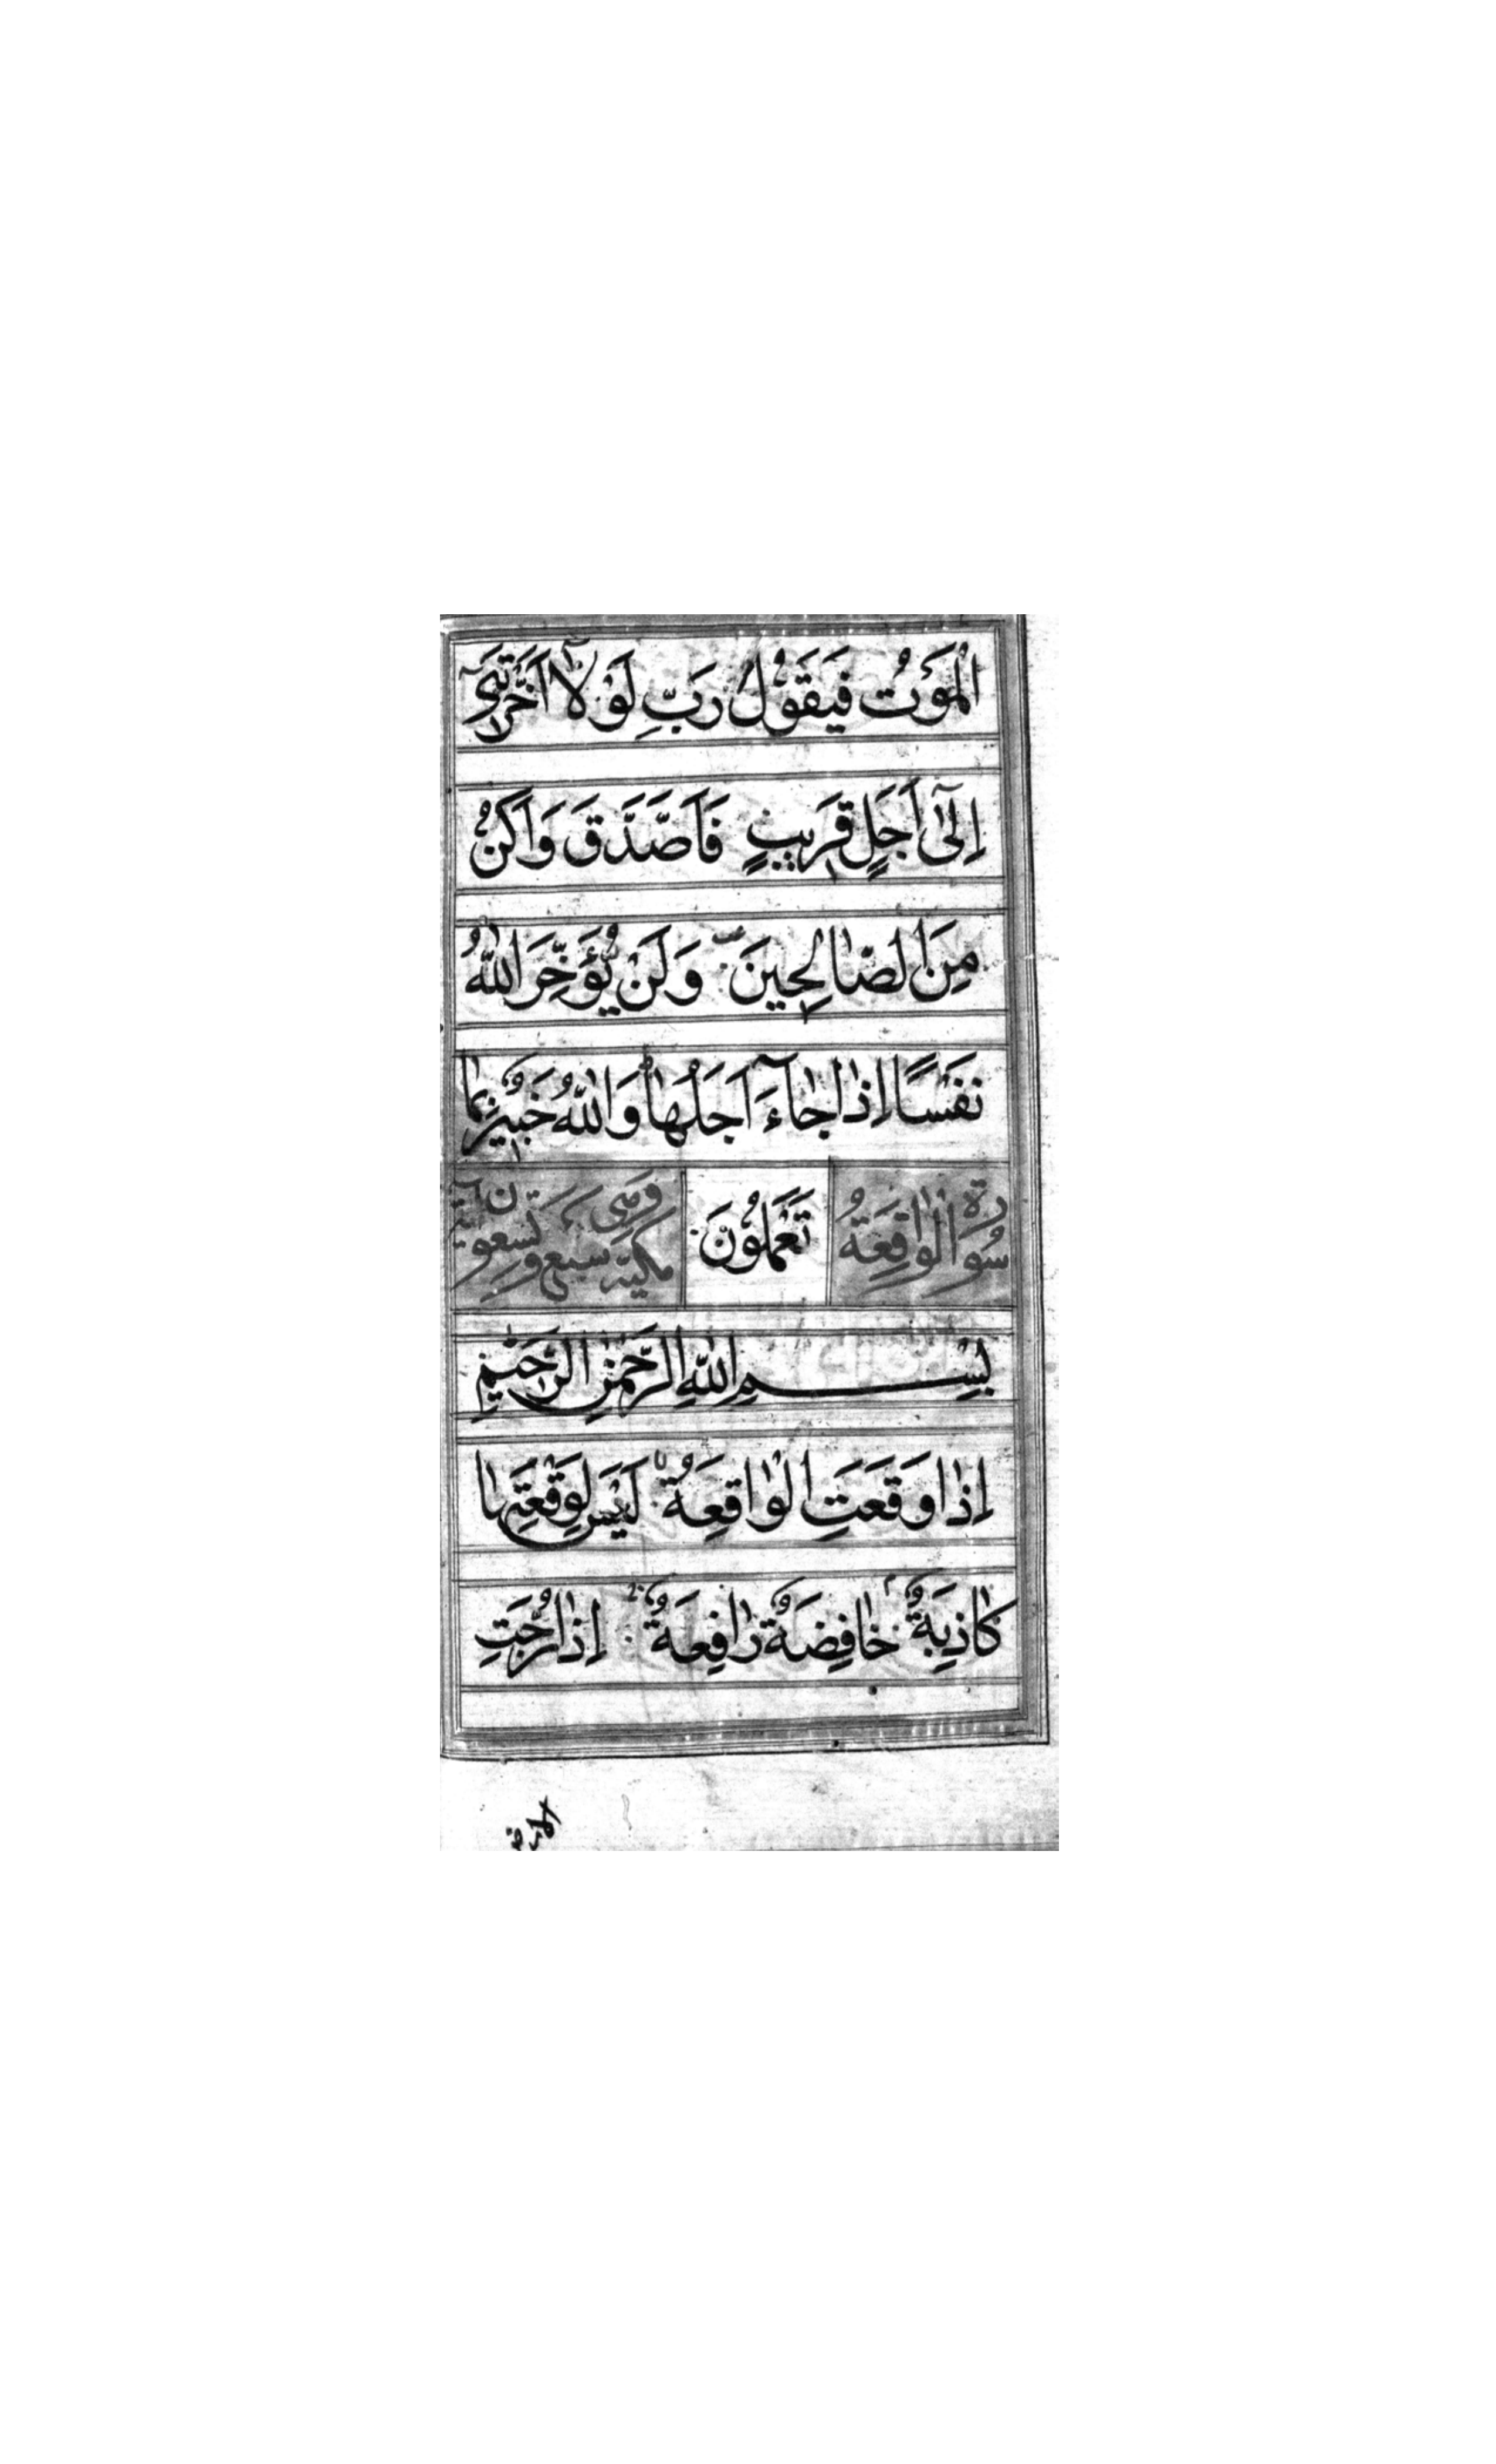 الْمَوْتُ فَيَقُوْلُ رَبِّ لَوْلَاۤ اَخَّرْتَنِيْۤ
اِلٰۤى اَجَلٍ قَرِيْبٍ فَاَصَّدَّقَ وَاَكُنْ
مِنَ الصّٰالِحِينَ وَلَنْ يُّؤَخِّرَ اللّٰهُ
نَفْسًا اِذَا جَآءَ اَجَلُهَا ط وَاللّٰهُ خَبِيْرٌ بِمَا
سُوْرَةُ الْوٰاقِعَةُ تَعْمَلُوْنَ وهي مكية سبع وتسعون آية
بِسْمِ اللّٰهِ الرَّحْمٰنِ الرَّحِيْمِ
اِذٰا وَقَعَتِ الْوٰاقِعَةُ لا لَيْسَ لِوَقْعَتِهٰا
كٰاذِبَةٌ م خٰافِضَةٌ رٰافِعَةٌ لا اِذٰا رُجَّتِ
الارض